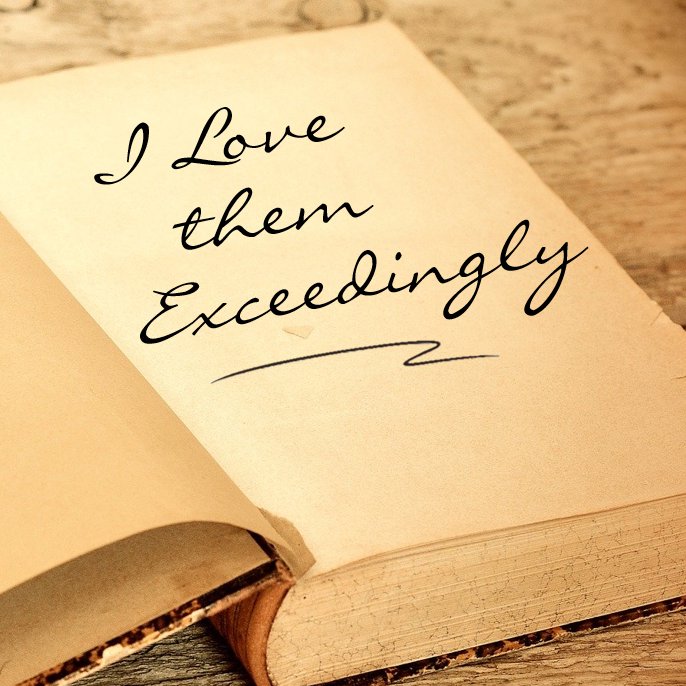 I Love
them
Exceedingly